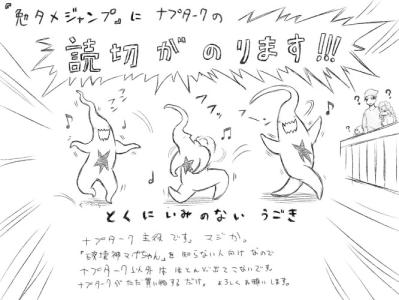 『勉タメジャンプ』に ナプタークの
読切がのります!!!
フンフン
フフッ
フンフン
? ? ?
とくにいみのない うごき
ナプターク 主役 です。 マジか。
「破壊神マグちゃん」を 知らない人向け なので
ナプターク以外は ほとんど出てこないです。
ナプタークが ただ買い物する だけ。 よろしくお願いします。